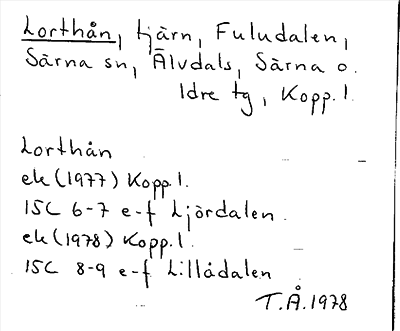 Lorthån, tjärn, Fuludalen,
Särna sn, Älvdals, Särna o.
Idre tg, Kopp.l.
Lorthån
ek (1977) Kopp.l.
15C 6-7 e-f Ljördalen.
ek (1978) Kopp.l
15C 8-9 e-f Lillådalen
T.Å.1978